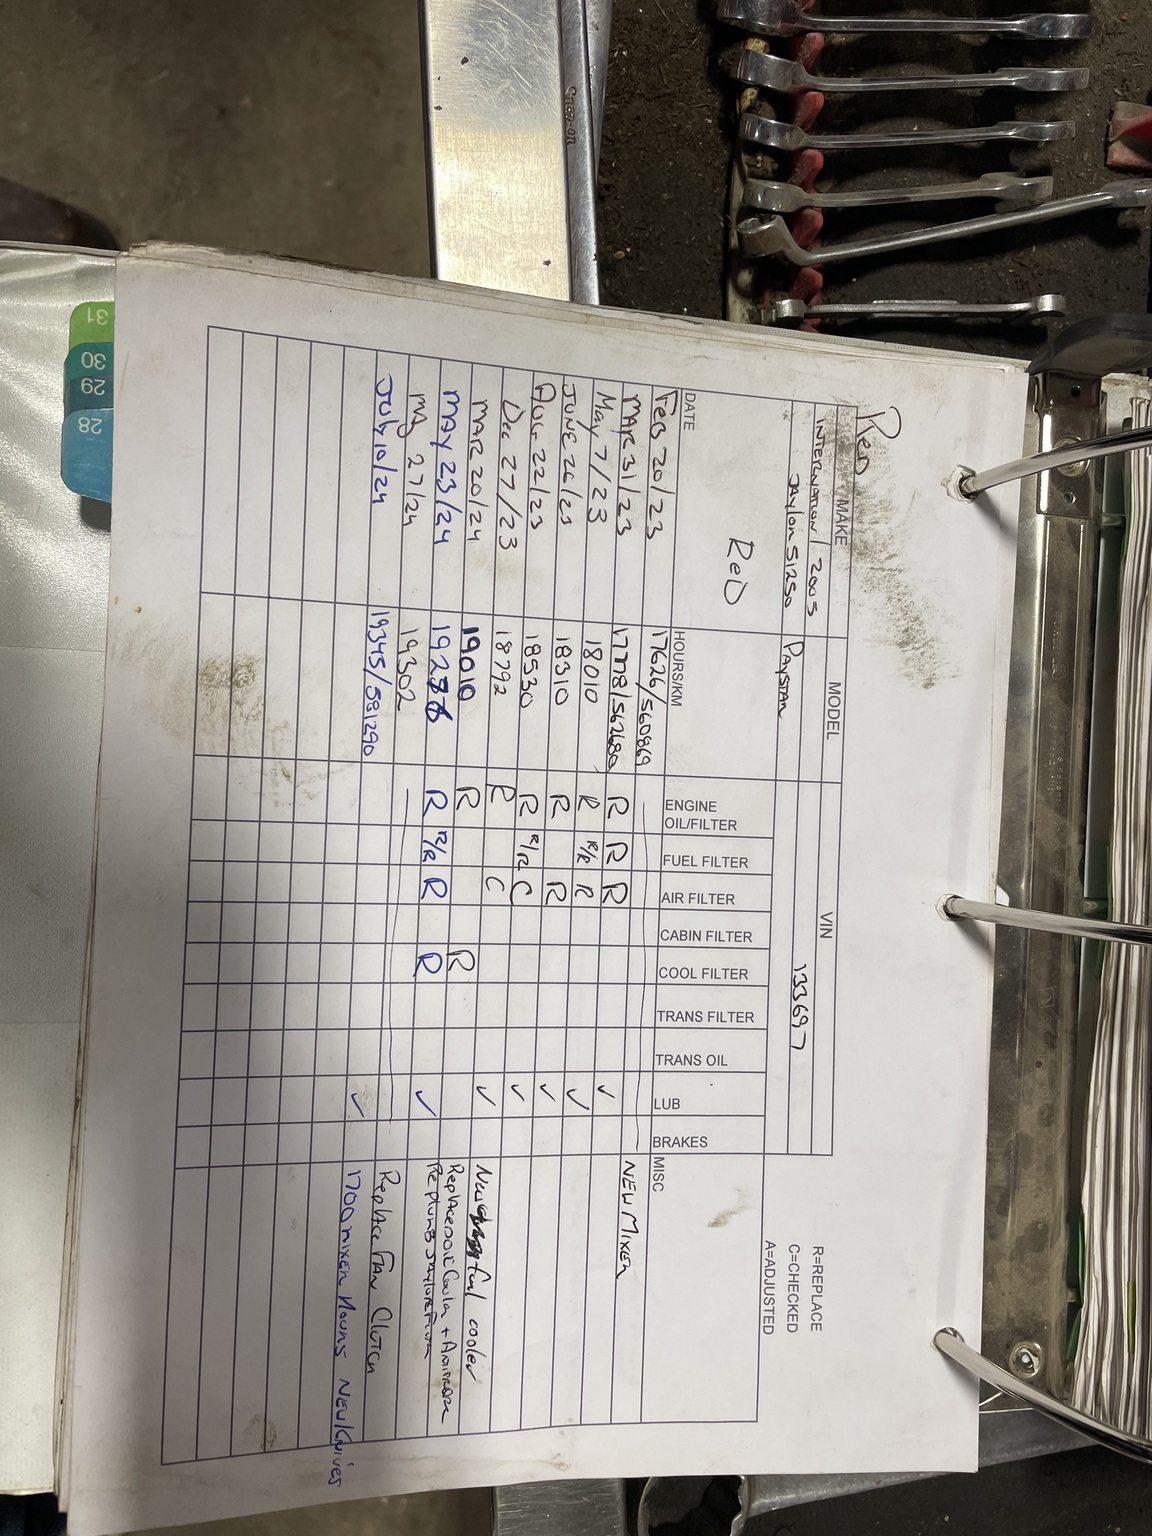 Red
MAKE MODEL VIN
INTERNATION 2005
JAylor 51250 PAYSTAR 133697
R=REPLACE
C=CHECKED
A=ADJUSTED
ReD
DATE HOURS/KM ENGINE OIL/FILTER FUEL FILTER AIR FILTER CABIN FILTER COOL FILTER TRANS FILTER TRANS OIL LUB BRAKES MISC
Feb 20/23 17626/560869 — NEW MIXER
MAR 31/23 17778/562680 R R R ✓
May 7/23 18010 R R/R R ✓
JUNE 26/23 18310 R R ✓
AUG 22/23 18530 R R/R C ✓
Dec 27/23 18792 R C ✓ New fuel cooler
MAR 20/24 19010 R R Replaced Oil Coola +
MAY 23/24 R R/R R R ✓
27/24 19302 — Replace FAN Clutch
July 10/24 19345/581290 ✓ 1700 mixer Hours New Knives
31
30
29
28